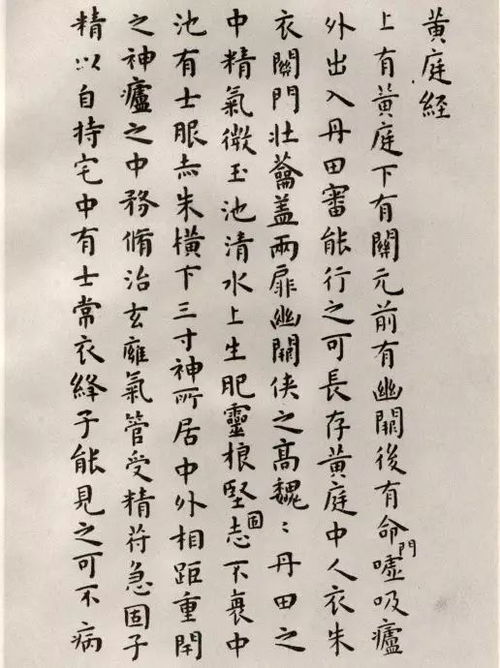 黃庭経
上有黃庭下有關元前有幽關後有命門噓吸廬
外出入丹田審能行之可長存黃庭中人衣朱
衣關門壯蘥盖兩扉幽關俠之髙魏〻丹田之
中精氣微玉池清水上生肥靈根堅固志不衰中
池有士服赤朱橫下三寸神所居中外相距重閇
之神廬之中務脩治玄廱氣管受精苻急固子
精以自持宅中有士常衣絳子能見之可不病